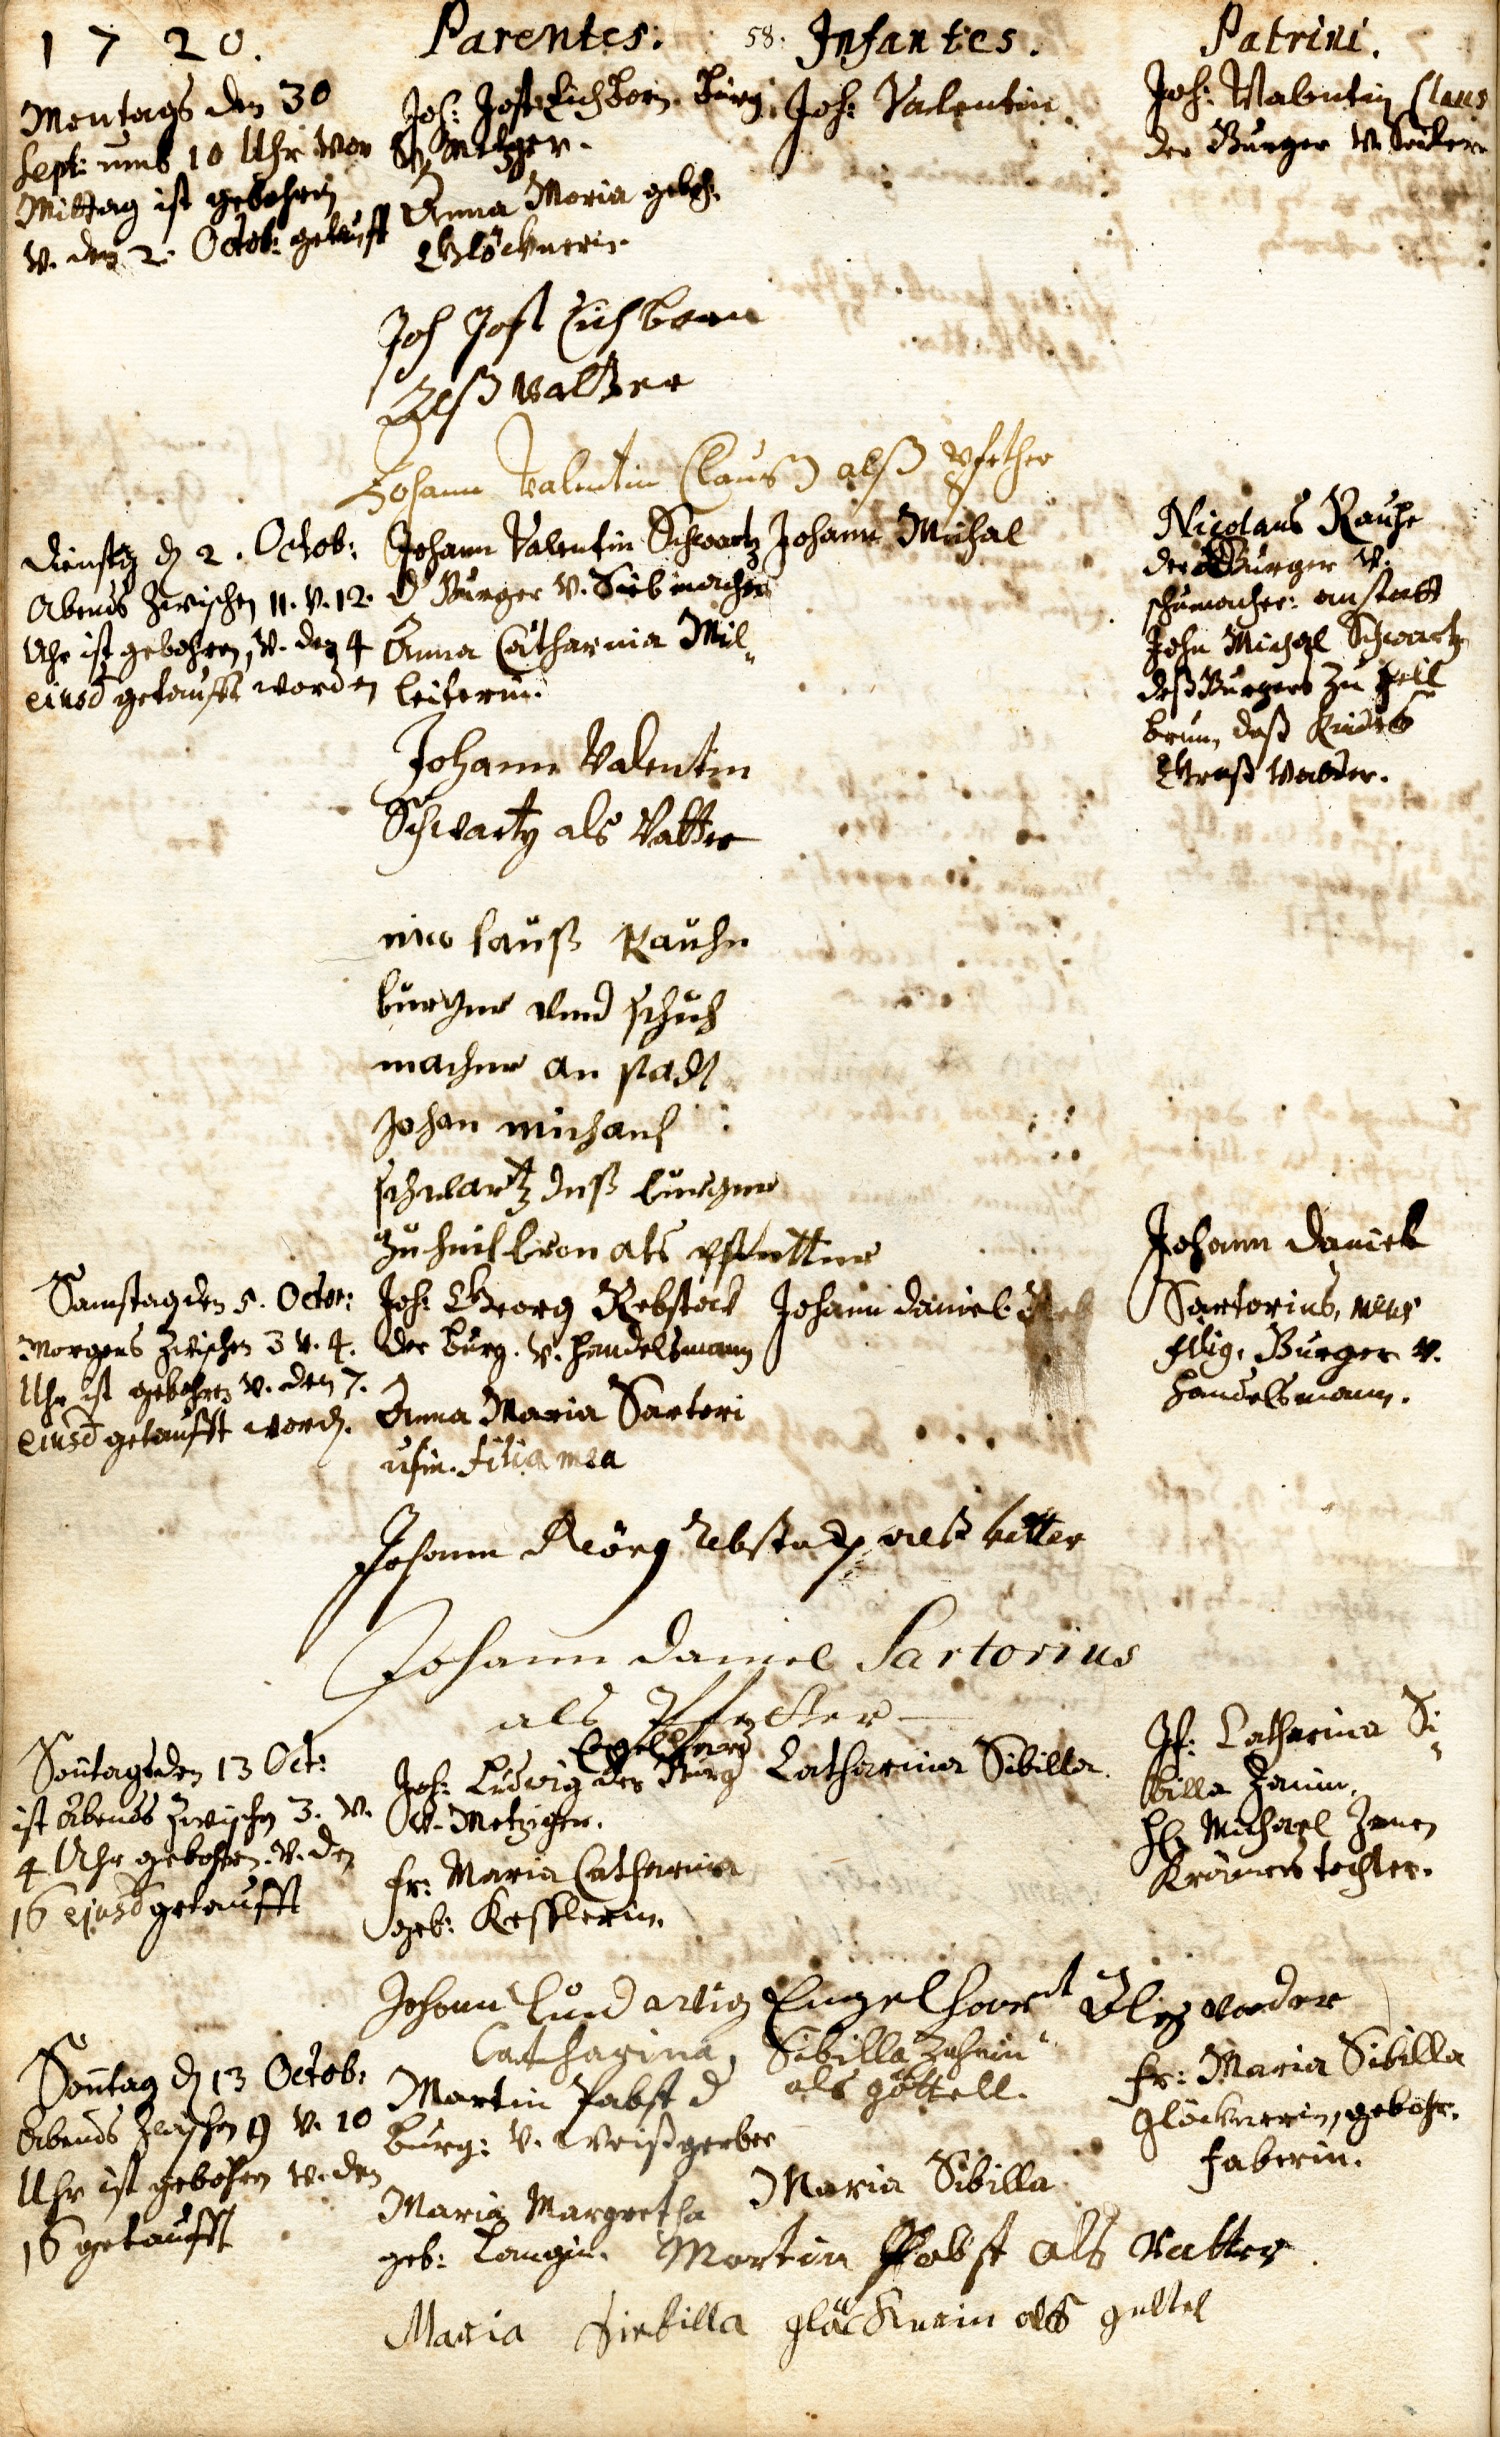 1720. Parentes: 58. Infantes. Patrini.
Montags den 30
Sept: umb 10 Uhr vor
Mittag ist gebohren
v. den 2. Octob: getaufft
Joh: Jost Eichborn. Burg.
v. Metzger.
Anna Maria geboh.
Glöcknerin.
Joh: Valentin.
Joh: Valentin Claus
der Burger v. Seiler
Joh Jost Eichborn
Alß vatter
Johann Valentin Clauß alß Pfether
Dienstg d. 2. Octob:
Abends zwischen 11. v. 12.
Uhr ist gebohren, v. den 4
eiusd getaufft worden
Johann Valentin Schwartz
d Burger v. Siebmacher
Anna Catharina Mil-
leiterin.
Johann Michal
Nicolaus Rauhe
der Burger v.
schumacher: anstatt
John Michal Schwartz
deß Burgers zu Heil
brun, deß Kindes
Groß Vatter.
Johann Valentin
Schwartz als Vatter
nico lauß Rauhe
burger vnd schuh
macher an stadt
Johan michael
schwartz deß burger
zu heilbron als pfetter
Samstag den 5. Octor:
Morgens zwischen 3 v. 4.
Uhr ist gebohren v. den 7.
eiusd getaufft word.
Joh: Georg Rebstock
der burg. v. handelsmann
Anna Maria Sartori
usin. filia mea
Johann Daniel
Johann Daniel
Sartorius, meus
filig. Burger v.
handelsmann.
Johann Geörg rebstock alß vatter
Johann Daniel Sartorius
als Pfetter
Sontags den 13 Oct:
ist Abends zwischen 3. v.
4 Uhr gebohren. v. den
16 ejusd getaufft
Engelhard
Joh: Ludwig der Burg
v. Metziger.
fr: Maria Catharina
geb: Kesslerin.
Catharina Sibilla.
Jf: Catharina Si-
billa Zanin,
H. Michael Zanen
Krämers tochter.
Johann Lud wig Engelhardt Als vader
Catharina Sibilla Zahnin
als göttell.
Sontag d. 13 Octob:
Abends zwischen 9 v. 10
Uhr ist gebohren v. den
16 getaufft
Martin Pabst d
burg: v. Weißgerber
Maria Margretha
geb: Langin.
Maria Sibilla
fr: Maria Sibilla
Glöcknerin, gebohr.
Faberin.
Martin Pabst als Vatter
Maria Siebilla glöcknerin als gettel